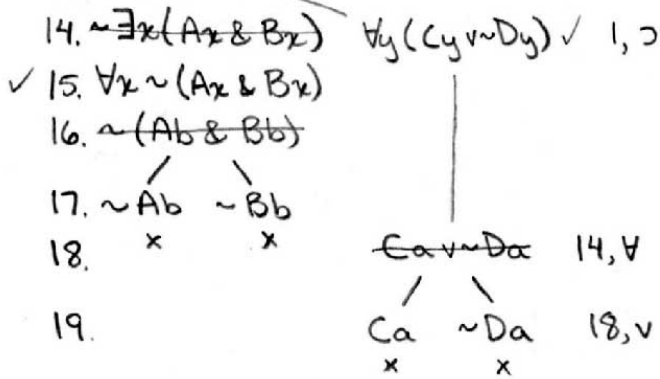 14. ~∃x(Ax & Bx) ∀y(Cy v ~Dy) ✓ 1, ⊃
✓ 15. ∀x ~ (Ax & Bx)
16. ~(Ab & Bb)
17. ~Ab ~Bb
x x
18. Ca v ~Da 14, ∀
19. Ca ~Da 18, v
x x